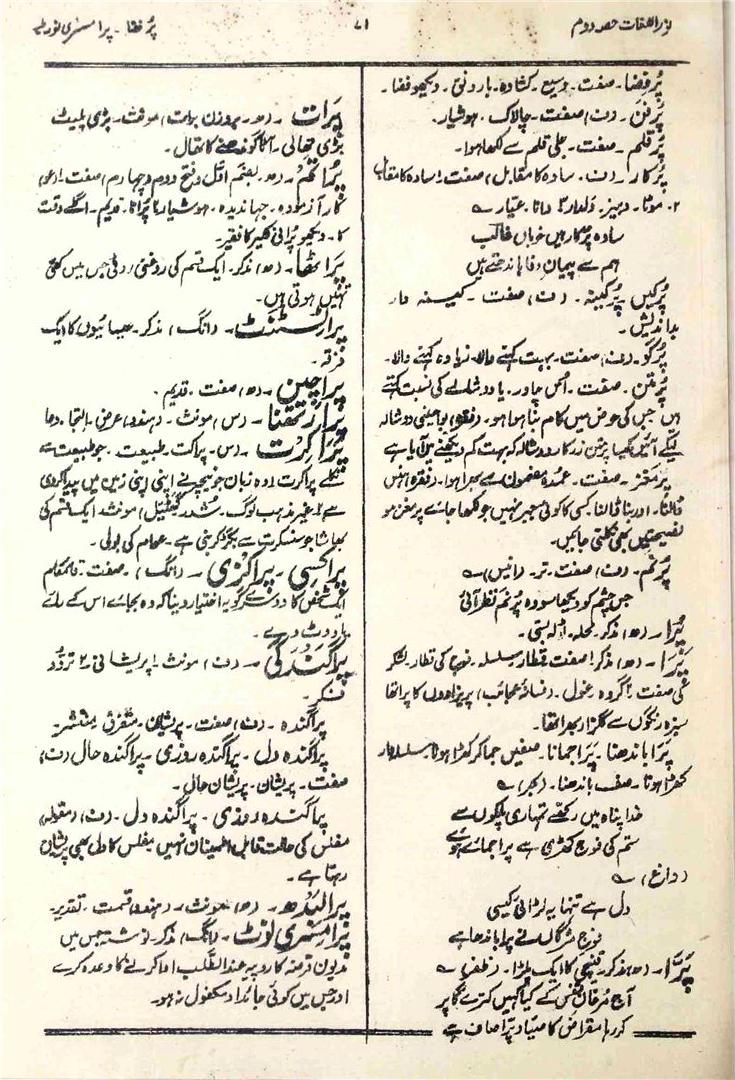 نور اللغات حصہ دوم
۷۱
پُر فضا ۔ پرامسری نوٹ
پُر فضا ۔ صفت ۔ وسیع ۔ کشادہ ۔ بارونق ۔ دیکھو فضا ۔
پُر فن ۔ (ف) صفت ۔ چالاک ۔ ہوشیار ۔
پُر قلم ۔ صفت ۔ جلی قلم سے لکھا ہوا ۔
پُر کار ۔ (ف) ۔ سادہ کا مقابل) صفت ۱ سادہ کا مقابل
۲ ۔ موٹا ۔ دبیز ۔ دلدار ۳ دانا ۔ عیّار ؎
سادہ پُرکار ہیں خوباں غالب
ہم سے پیمان وفا باندھتے ہیں
پُرکیں ۔ پُرکینہ ۔ (ف) صفت ۔ کینہ دار
بداندیش ۔
پُر گو ۔ (ف) صفت ۔ بہت کہنے والا ۔ زیادہ کہنے والا ۔
پُر متن ۔ صفت ۔ اُس چادر ۔ یا دوشالے کی نسبت کہتے
ہیں جس کی عوض میں کام بنا ہوا ہو ۔ (فقرہ)
پُر مغز ۔ صفت ۔ عمدہ مضمون سے بھرا ہوا ۔ (فقرہ)
نصیحتیں بھی نکلتی جائیں ۔
پُر نم ۔ (ف) صفت ۔ تر ۔ (انیس) ؎
جس چشم کو دیکھا سو وہ پُر نم نظر آئی
پُرا ۔ (ھ) مذکر ۔ محلہ ۔ بستی ۔
پَرَا ۔ (ھ) مذکر ۱ صفت ۔ قطار ۔ سلسلہ ۔ فوج کی قطار ۔ لشکر
کی صفت ۲ گروہ ۔ غول ۔ (فسانۂ عجائب) پریزادوں کا پرا تھا
سبزہ رنگوں سے
پَرَا باندھنا ۔ پَرَا جمانا ۔ صفیں جما کر کھڑا ہونا ۔ سلسلہ وار
کھڑا ہونا ۔ صف باندھنا ۔ (بحر) ؎
خدا پناہ میں رکھے تمہاری پلکوں سے
ستم کی فوج کھڑی ہے پرا جمائے ہوئے
(داغ) ؎
دل ہے تنہا یہ لڑائی کیسی
فوج مژگاں نے پرا باندھا ہے
پَرّا ۔ (ھ) مذکر ۔ قینچی کا ایک طرا ۔ (ظفر) ؎
آج مُرغان قفس کے کیا کہیں کترے گا پر
کر رہا مقراض کا صیاد پرّا صاف ہے
پَرَات ۔ (ھ ۔ بروزن برات) مونث ۔ بڑی پلیٹ
بڑی تھالی ۔ آٹا گوندھنے کا تھال ۔
پُراتَم ۔ (ھ ۔ بضم اول و فتح دوم و چہارم) صفت ۔ (عو)
کار آزمودہ ۔ جہاندیدہ ۔ ہوشیار ۲ پُرانا ۔ قدیم ۔ اگلے وقت
کا ۔ دیکھو پُرانی لکیر کا فقیر ۔
پَراٹھا ۔ (ھ) مذکر ۔ ایک قسم کی روغنی روٹی جس میں کئی
تہیں ہوتی ہیں ۔
پراٹسٹنٹ ۔ (انگ) مذکر ۔ عیسائیوں کا ایک
فرقہ ۔
پراچین ۔ (ھ) صفت ۔ قدیم ۔
پرارتھنا ۔ (س) مونث ۔ (ہندو) عرض ۔ التجا ۔ دعا
پراکرت ۔ (س ۔ پراکت ۔ طبیعت ۔ جو طبیعت سے
نکلے پراکرت ۱ وہ زبان جو نیچر نے اپنی اپنی زمین میں پیدا کر دی
ہے ۱ غیر مذہب لوگ ۔ مونث ۔ ایک قسم کی
بھاشا جو سنسکرت سے بگڑ کر بنی ہے ۔ عوام کی بولی ۔
پراکسی ۔ پراکزی ۔ (انگ) ۔ صفت ۔ قائم مقام
ایک شخص کا دوسرے کو یہ اختیار دینا کہ وہ بجائے اس کے رائے
یا ووٹ دے ۔
پراگندگی ۔ (ف) مونث ۔ ۱ پریشانی ۔ ۲ تردّد
فکر ۔
پراگندہ ۔ (ف) صفت ۔ پریشان ۔ متفرق ۔ منتشر ۔
پراگندہ دل ۔ پراگندہ روزی ۔ پراگندہ حال (ف)
صفت ۔ پریشان ۔ پریشان حال ۔
پراگندہ روزی ۔ پراگندہ دل ۔ (ف) (مقولہ)
مفلس کی حالت قابل اطمینان نہیں مفلس کا دل بھی پریشان
رہتا ہے ۔
پرالبدھ ۔ (ھ) مونث ۔ (ہندو) قسمت ۔ تقدیر ۔
پرامسری نوٹ ۔ (انگ) مذکر ۔ نوشتہ جس میں
مدیون قرضہ کا روپیہ عند الطلب ادا کرنے کا وعدہ کرے
اور جس میں کوئی جائداد مکفول نہ ہو ۔